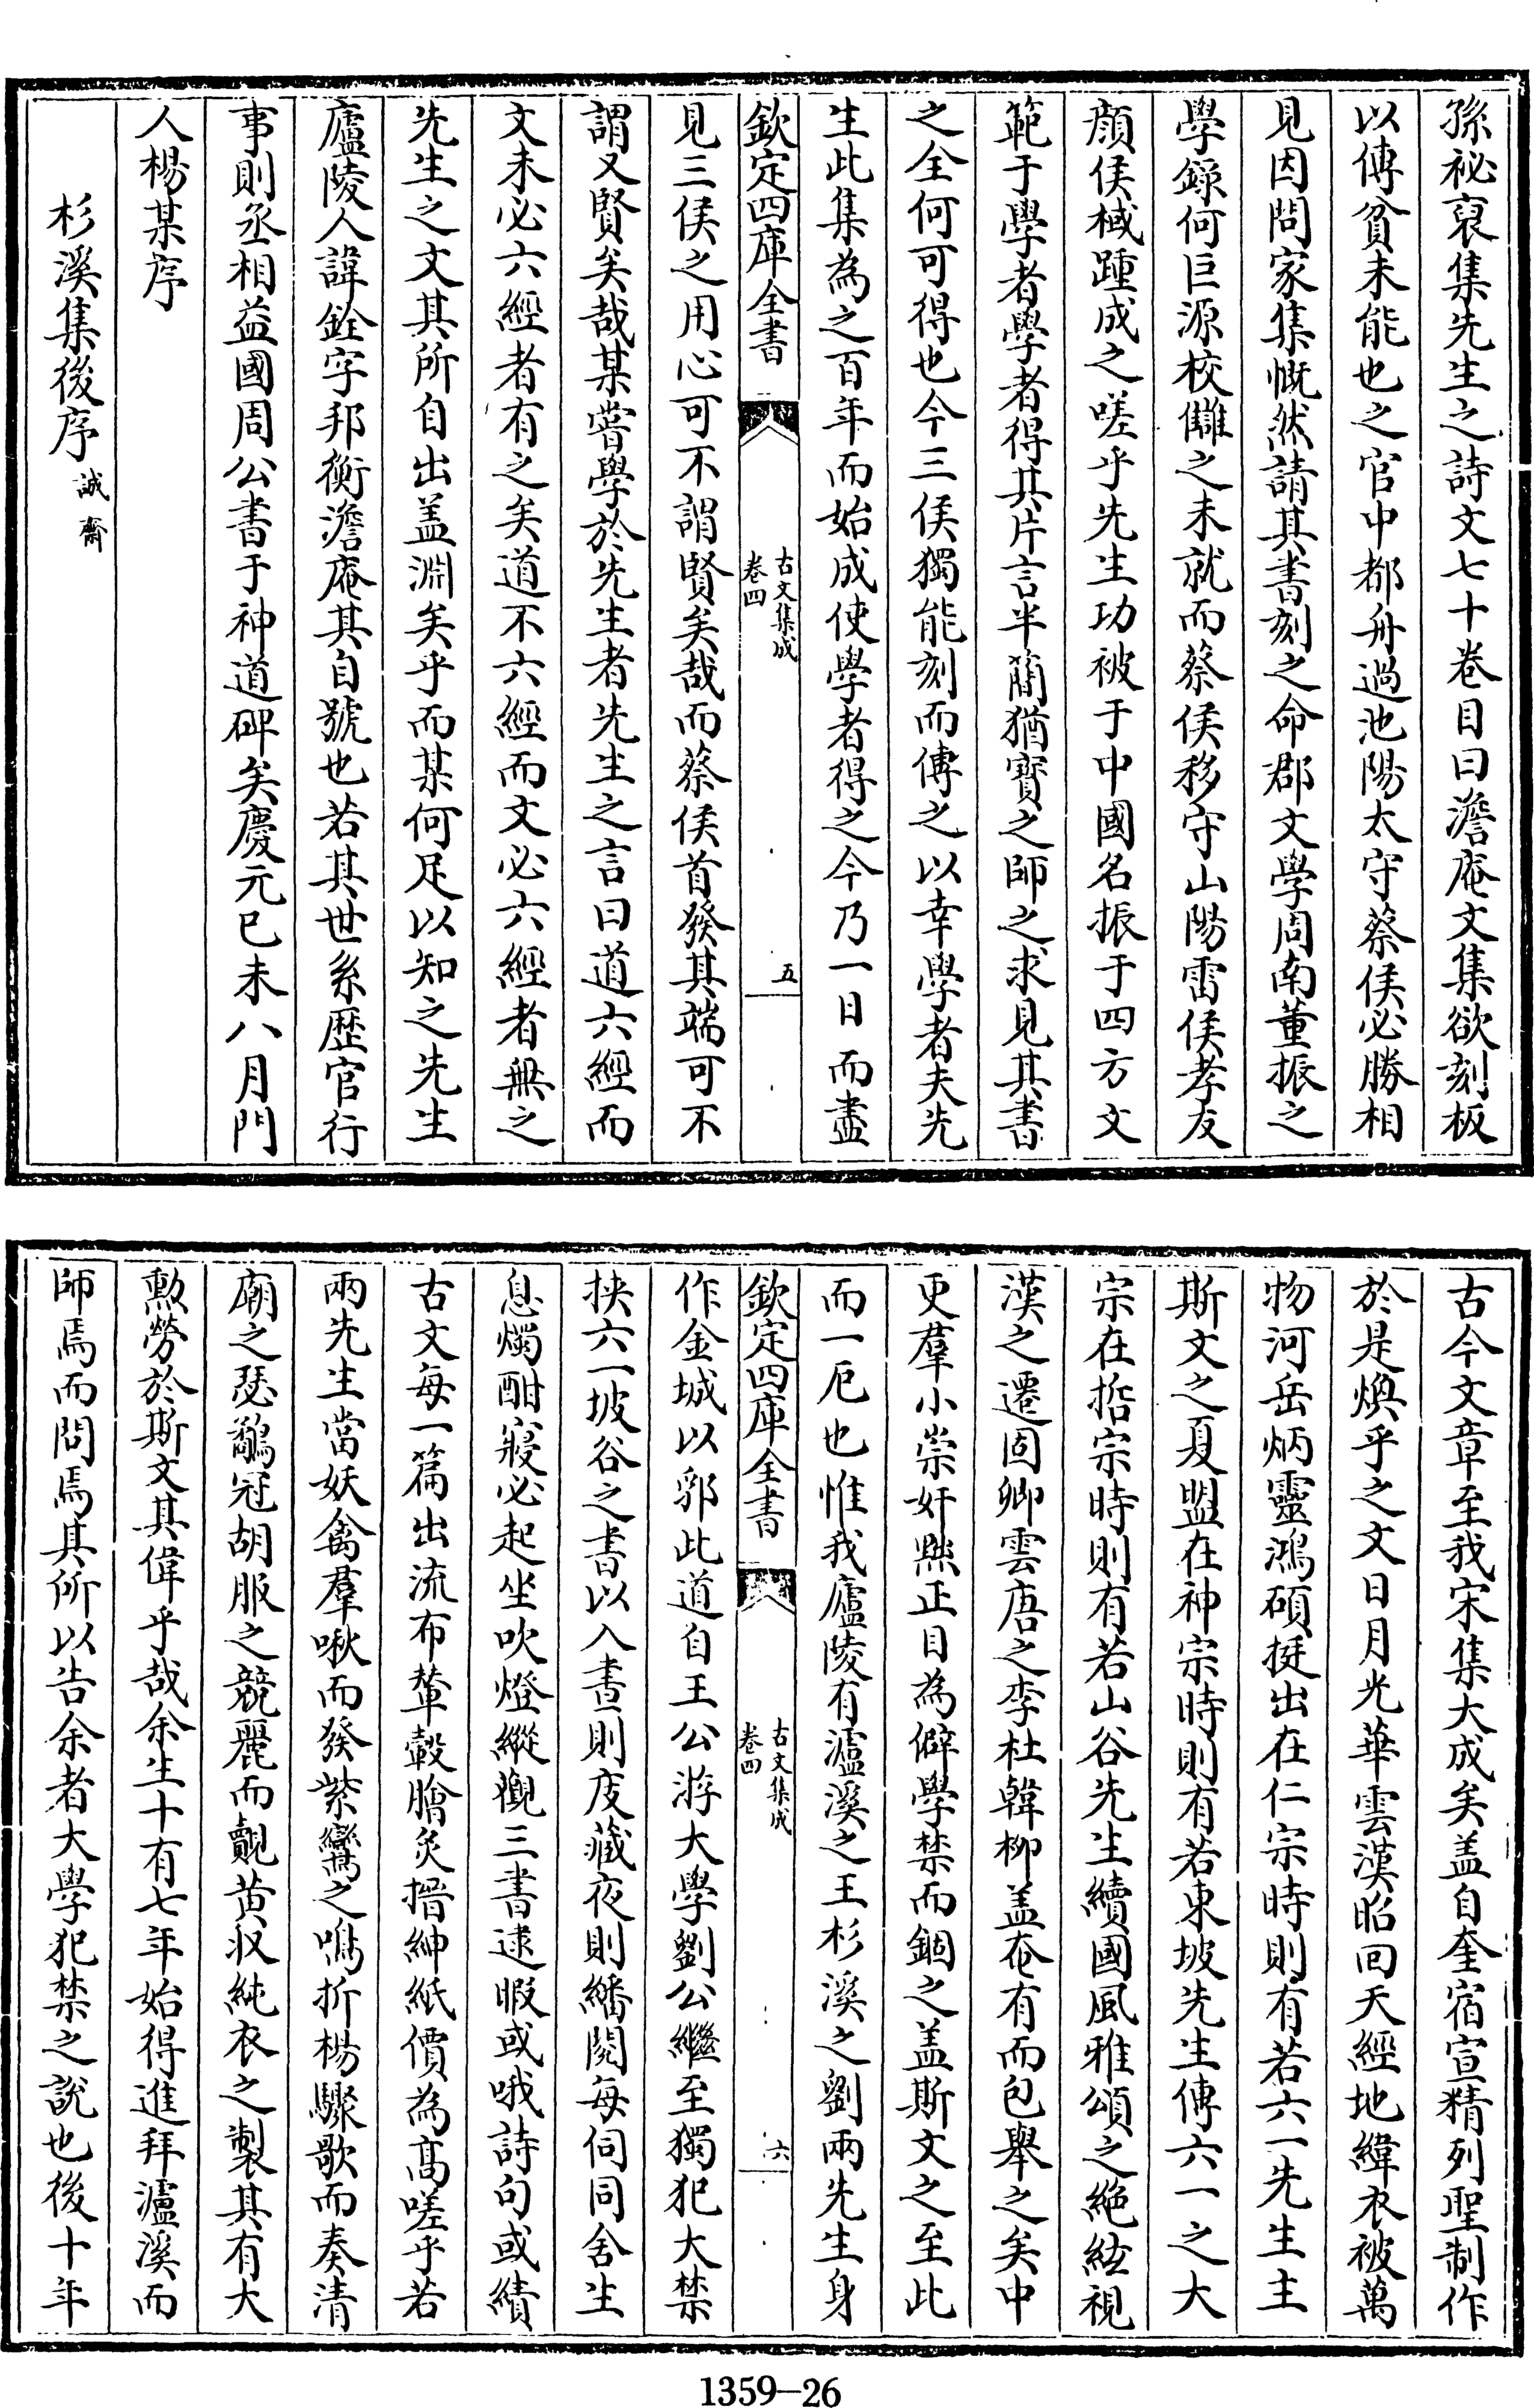 孫祕裒集先生之詩文七十卷目曰澹庵文集欲刻板
以傳貧未能也之官中都舟過池陽太守蔡侯必勝相
見因問家集慨然請其書刻之命郡文學周南董振之
學録何巨源校讎之未就而蔡侯移守山陽雷侯孝友
顔侯棫踵成之嗟乎先生功被于中國名振于四方文
範于學者學者得其片言半簡猶寳之師之求見其書
之全何可得也今三侯獨能刻而傳之以幸學者夫先
生此集為之百年而始成使學者得之今乃一日而盡
欽定四庫全書
古文集成
卷四
五
見三侯之用心可不謂賢矣哉而蔡侯首發其端可不
謂又賢矣哉某嘗學於先生者先生之言曰道六經而
文未必六經者有之矣道不六經而文必六經者無之
先生之文其所自出盖淵矣乎而某何足以知之先生
廬陵人諱銓字邦衡澹庵其自號也若其世系歴官行
事則丞相益國周公書于神道碑矣慶元已未八月門
人楊某序
杉溪集後序 誠齋
古今文章至我宋集大成矣盖自奎宿宣精列聖制作
於是煥乎之文日月光華雲漢昭回天經地緯衣被萬
物河岳炳靈鴻碩挺出在仁宗時則有若六一先生主
斯文之夏盟在神宗時則有若東坡先生傳六一之大
宗在哲宗時則有若山谷先生續國風雅頌之絶絃視
漢之遷固卿雲唐之李杜韓柳盖奄有而包舉之矣中
更羣小崇奸黜正目為僻學禁而錮之盖斯文之至此
而一厄也惟我廬陵有瀘溪之王杉溪之劉兩先生身
欽定四庫全書
古文集成
卷四
六
作金城以郛此道自王公游大學劉公繼至獨犯大禁
挾六一坡谷之書以入晝則庋藏夜則繙閱每伺同舍生
息燭酣寢必起坐吹燈縱觀三書逮暇或哦詩句或績
古文每一篇出流布輦轂膾炙搢紳紙價為髙嗟乎若
兩先生當妖禽羣啾而發紫鸞之鳴折楊驟歌而奏清
廟之瑟鷸冠胡服之競麗而覿黄収純衣之製其有大
勲勞於斯文其偉乎哉余生十有七年始得進拜瀘溪而
師焉而問焉其所以告余者大學犯禁之説也後十年
1359-26